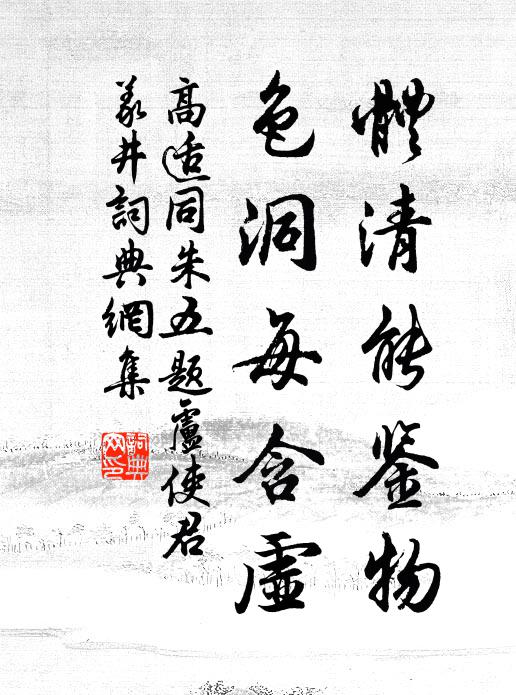 體清能鉴物
色洞每含虛
高适同朱五题盧使君
義井詞典網集
詞典
网印